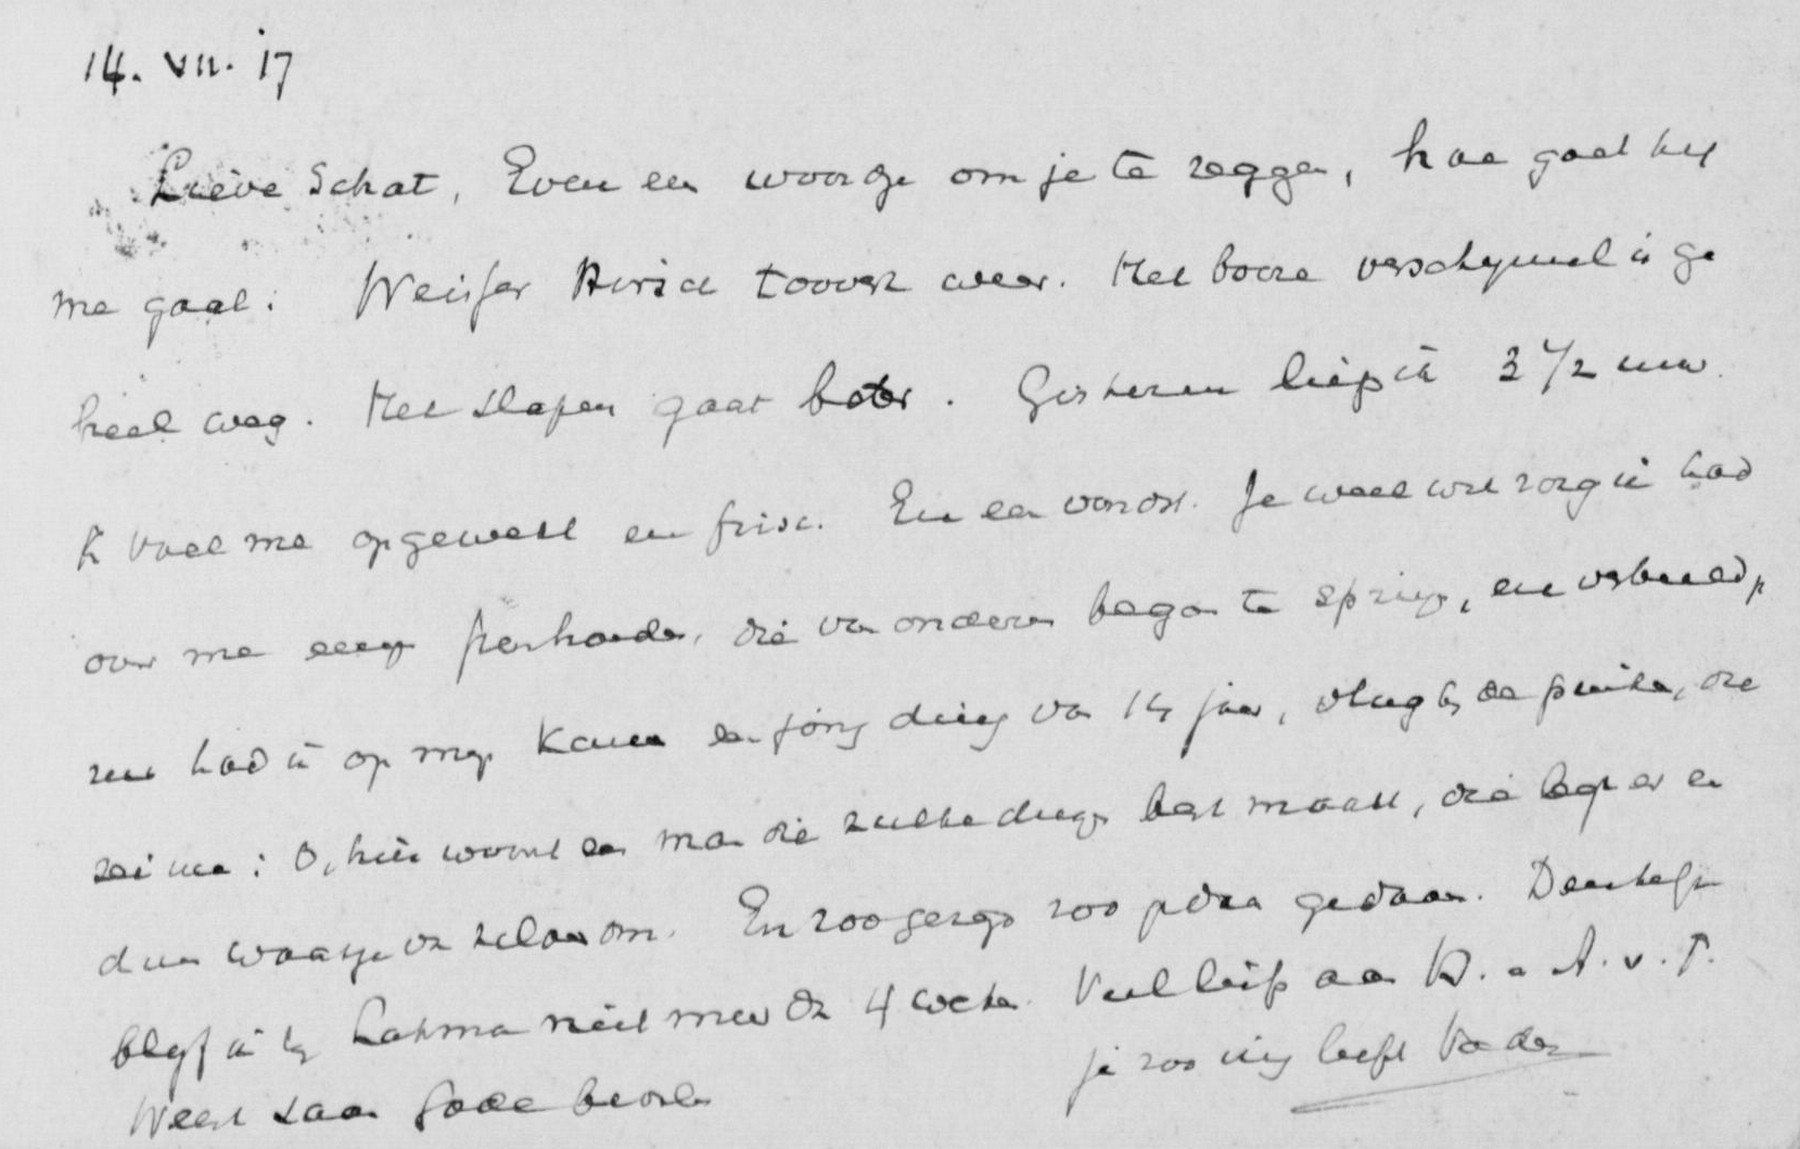 14. VII. 17
Lieve Schat, Even een woordje om je te zeggen, hoe goed het
me gaat. Weisser Hirsch toovert weer. Het booze verschijnsel is ge
heel weg. Het slapen gaat beter. Gisteren liep ik 3 1/2 uur.
Ik voel me opgewekt en frisch. En een vondst. Je weet wel zorg ik had
over me eenige, die van onderen begon te springen, en verbeeld je
nu had ik op mijn Kamer een jong ding van 14 jaar, vlug bij de pinken, die
zei me: O, hier woont een man die zulke dingen best maakt, die legt er een
dun waasje van om. En zoo gezegd zoo gedaan. Denkelijk
blijf ik bij Lahman niet meer dan 4 weken. Veel liefs aan W. en A. v. T.
Weest Gode bevolen je zoo innig liefh Vader